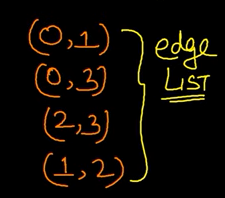 (0,1)
(0,3)
(2,3)
(1,2)
edge
LIST